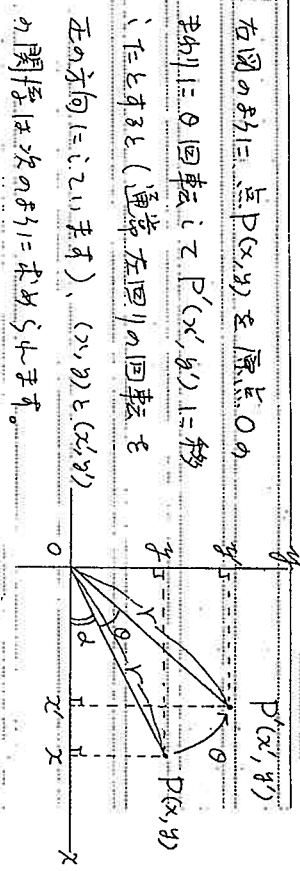 右図のように点P(x,y)を原点Oの
まわりにθ回転してP'(x',y')に移
したとすると(通常左回りの回転を
正の方向にしています)、(x,y)と(x',y')
の関係は次のように求められます。
y
y'
y
P'(x',y')
θ
P(x,y)
r
r
θ
α
O
x'
x
x